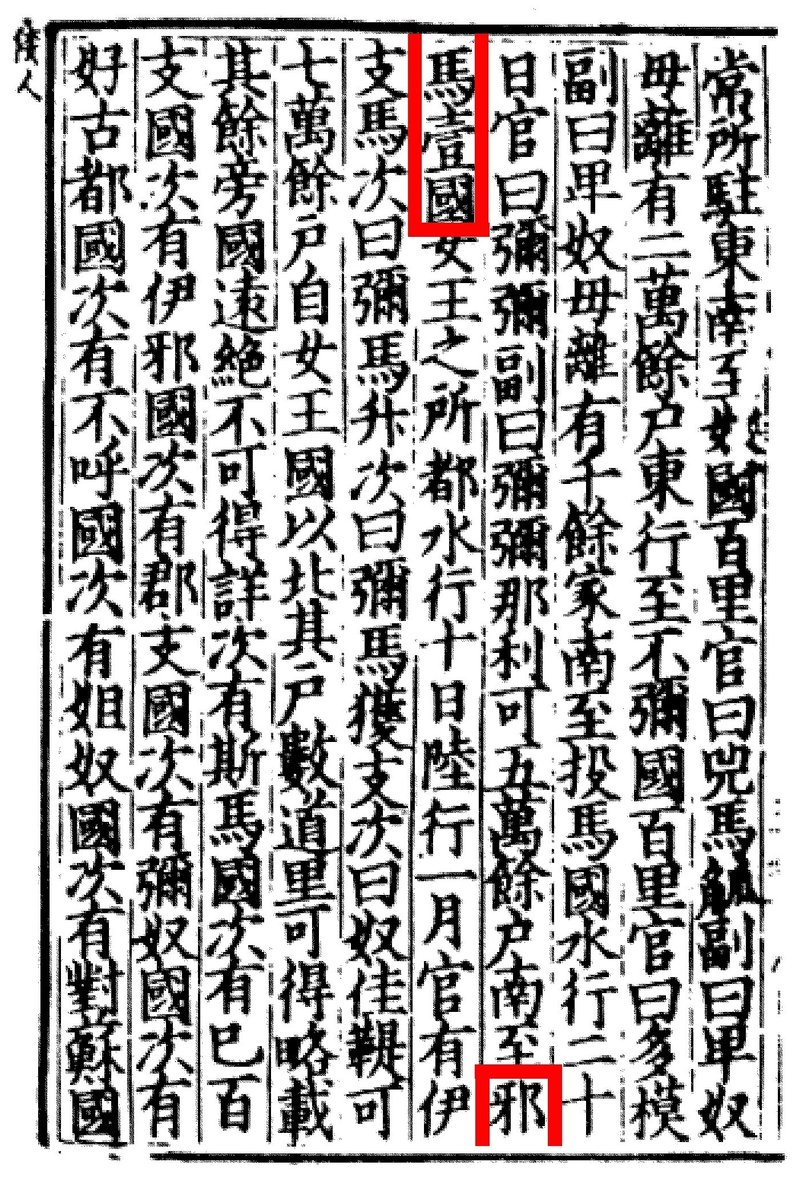 常所駐東南至奴國百里官曰兕馬觚副曰卑奴
毋離有二萬餘戶東行至不彌國百里官曰多模
副曰卑奴毋離有千餘家南至投馬國水行二十
日官曰彌彌副曰彌彌那利可五萬餘戶南至邪
馬壹國女王之所都水行十日陸行一月官有伊
支馬次曰彌馬升次曰彌馬獲支次曰奴佳鞮可
七萬餘戶自女王國以北其戶數道里可得略載
其餘旁國遠絕不可得詳次有斯馬國次有已百
支國次有伊邪國次有郡支國次有彌奴國次有
好古都國次有不呼國次有姐奴國次有對蘇國
倭人